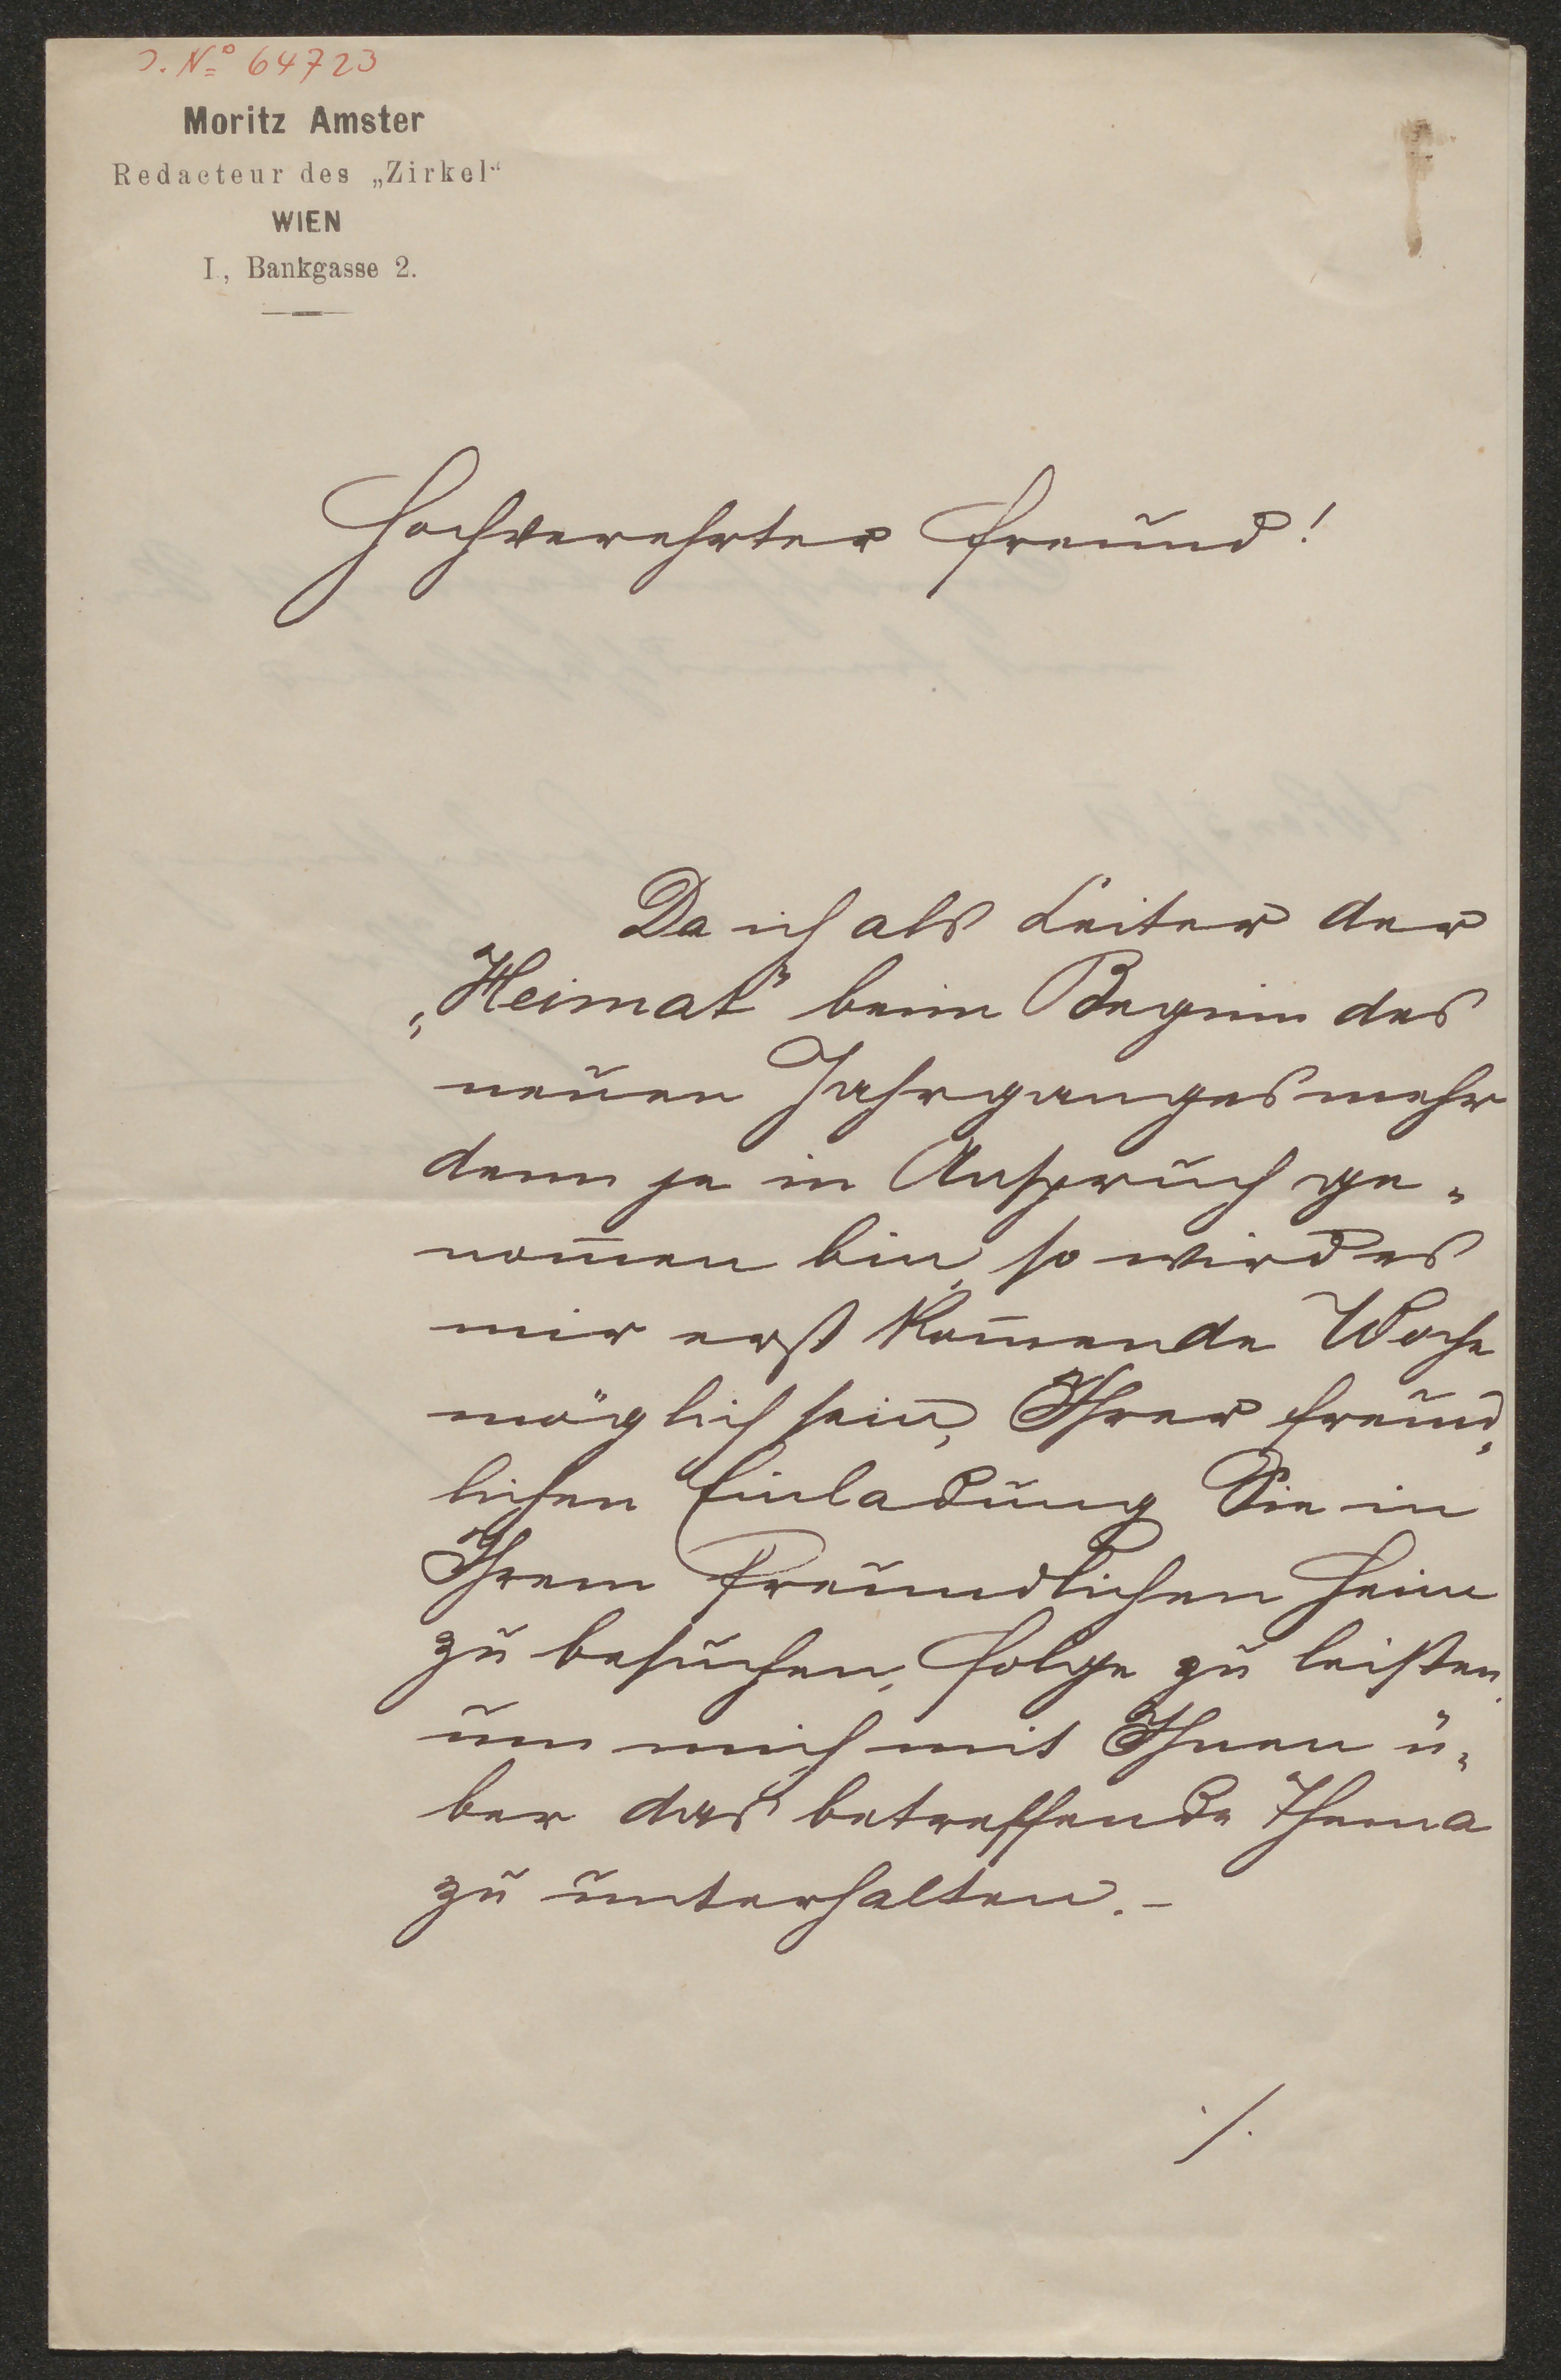 J. No 64723
Moritz Amster
Redacteur des „Zirkel“
WIEN
I., Bankgasse 2.
Hochverehrter Freund!
Da ich als Leiter der
„Heimat“ beim Beginn des
neuen Jahrganges mehr
denn je in Anspruch ge-
nom̄en bin, so wird es
mir erst kom̄ende Woche
möglich sein, Ihrer freund-
lichen Einladung Sie in
Ihrem freundlichen Heim
zu besuchen, Folge zu leisten,
um mich mit Ihnen ü-
ber das betreffende Thema
zu unterhalten. –
./.